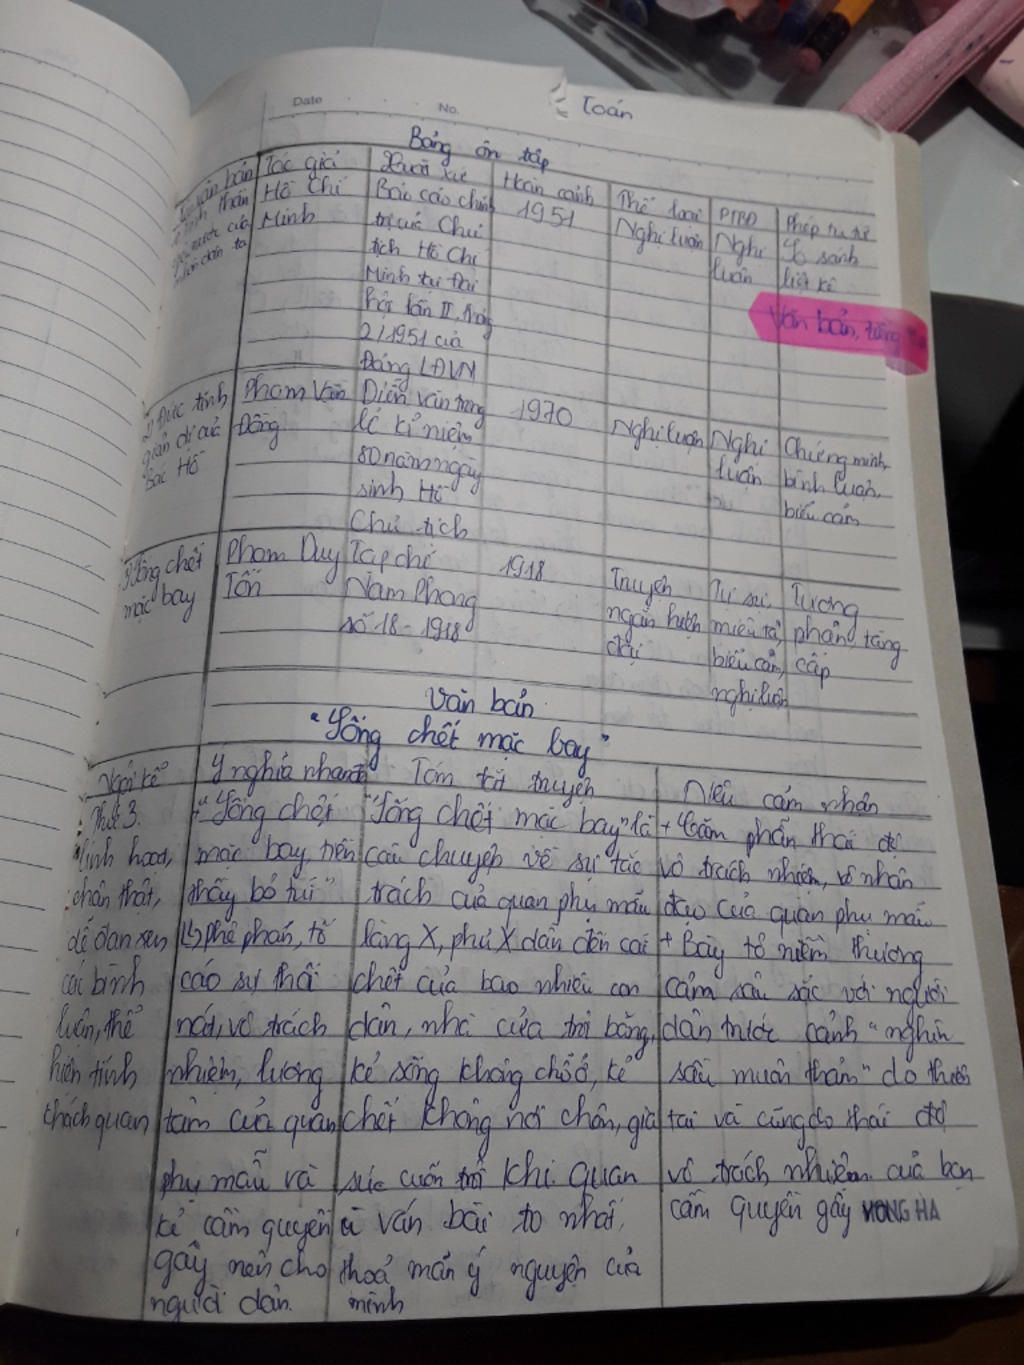 Date No. Toán
Bảng ôn tập
văn bản Tác giả Xuất xứ Hoàn cảnh Thể loại PTBĐ Phép tu từ
tinh thần Hồ Chí Báo cáo chính 1951 Nghị luận Nghị So sánh
yêu nước của Minh trị của Chủ luận liệt kê
nhân dân ta tịch Hồ Chí
Minh tại Đại
hội lần II, tháng Văn bản, tiếng
2/1951 của
Đảng LĐVN
2) Đức tính Phạm Văn Diễn văn trong 1970 Nghị luận Nghị Chứng minh,
giản dị của Đồng lễ kỉ niệm luận bình luận,
Bác Hồ 80 năm ngày biểu cảm
sinh Hồ
Chủ tịch
3) Sống chết Phạm Duy Tạp chí 1918 Truyện Tự sự, Tương
mặc bay Tốn Nam Phong ngắn hiện miêu tả, phản, tăng
số 18-1918 đại biểu cảm, cấp
nghị luận
Văn bản
"Sống chết mặc bay"
Ngôi kể Ý nghĩa nhan đề Tóm tắt truyện Nêu cảm nhận
Thứ 3. + "Sống chết "Sống chết mặc bay" là + Căm phẫn thái độ
linh hoạt, mặc bay tiền câu chuyện về sự tắc vô trách nhiệm, vô nhân
chân thật, thầy bỏ túi" trách của quan phụ mẫu đạo của quan phụ mẫu
dễ đan xen phê phán, tố làng X, phủ X dẫn đến cái + Bày tỏ niềm thương
cái bình cáo sự thối chết của bao nhiêu con cảm sâu sắc với người
luận, thể nát, vô trách dân, nhà cửa trôi băng, dân trước cảnh "nghìn
hiện tính nhiệm, lương kẻ sống không chỗ ở, kẻ sầu muôn thảm" do thiên
khách quan tâm của quan chết không nơi chôn, gia tai và cũng do thái độ
phụ mẫu và súc cuốn trôi khi quan vô trách nhiệm của bọn
kẻ cầm quyền ù ván bài to nhất, cầm quyền gây HONG HA
gây nên cho thoả mãn ý nguyện của
người dân. mình